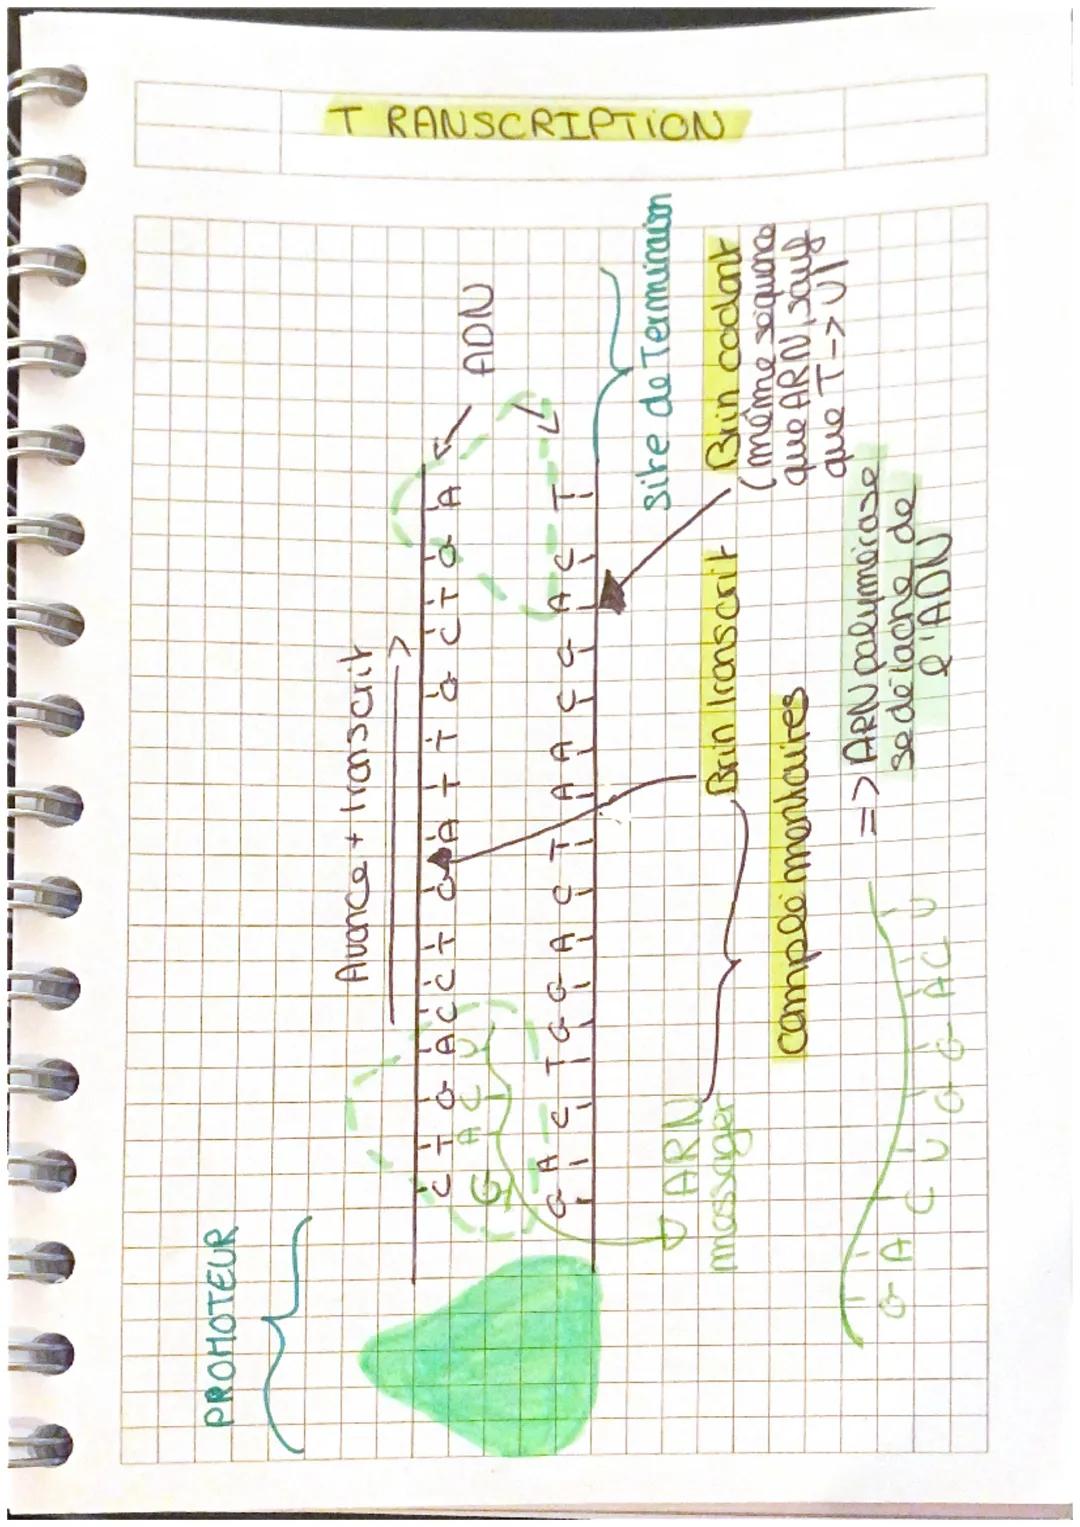 TRANSCRIPTION
PROMOTEUR
Avance + transcrit
ADN
C T G A C C T G A T T G C T G A
G A C U
G A C T G G A C T A A C G A C T
Site de Terminaison
ARN
messager
Brin transcrit
Brin codant
(même séquence
que ARN, sauf
que T -> U)
complémentaires
=> ARN polymérase
se détache de
l'ADN
G A C U G G A C U